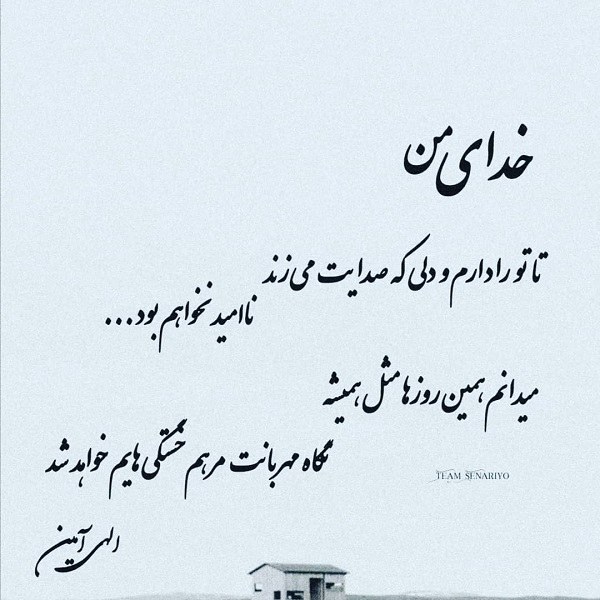 خدای من
تا تو را دارم و دلی که صدایت می زند
ناامید نخواهم بود...
میدانم همین روزها مثل همیشه
نگاه مهربانت مرهم خستگی هایم خواهد شد
TEAM SENARIYO
الهی آمین